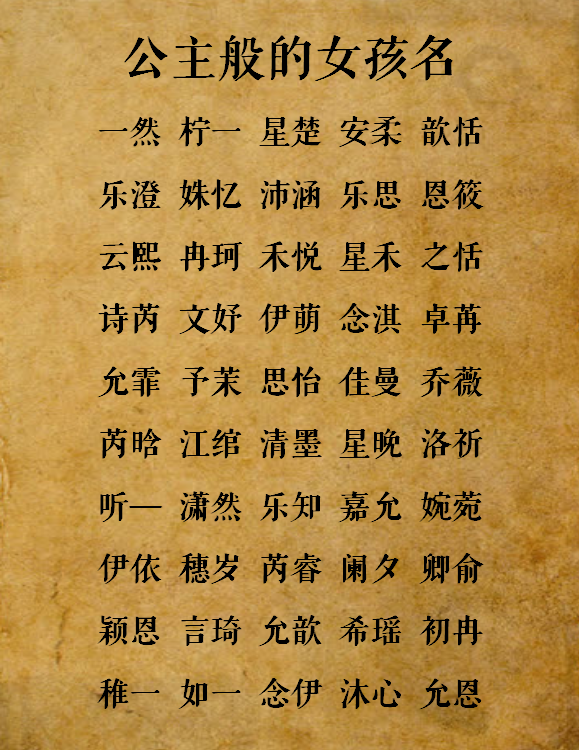 公主般的女孩名
一然 柠一 星楚 安柔 歆恬
乐澄 姝忆 沛涵 乐思 恩筱
云熙 冉珂 禾悦 星禾 之恬
诗芮 文妤 伊萌 念淇 卓苒
允霏 予茉 思怡 佳曼 乔薇
芮晗 江绾 清墨 星晚 洛祈
听一 潇然 乐知 嘉允 婉菀
伊依 穗岁 芮睿 阑夕 卿俞
颖恩 言琦 允歆 希瑶 初冉
稚一 如一 念伊 沐心 允恩